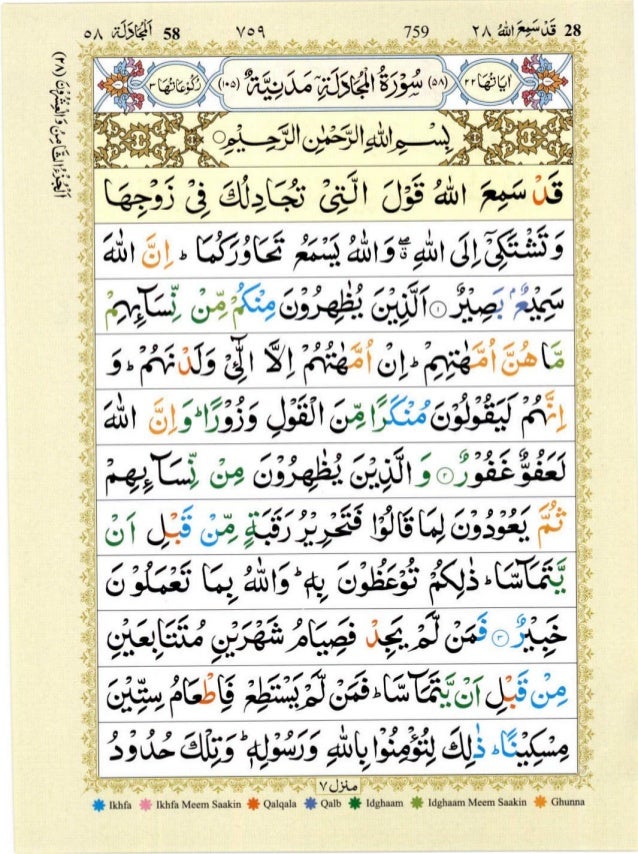 28 قَدْ سَمِعَ اللهُ ٢٨ 759 ٧٥٩ 58 اَلْمُجَادَلَة ٥٨
اٰیَاتُهَا ٢٢ (٥٨) سُوْرَةُ الْمُجَادَلَةِ مَدَنِيَّةٌ (١٠٥) رُكُوْعَاتُهَا ٣
بِسْمِ اللهِ الرَّحْمٰنِ الرَّحِيْمِ
قَدْ سَمِعَ اللهُ قَوْلَ الَّتِيْ تُجَادِلُكَ فِيْ زَوْجِهَا
وَتَشْتَكِيْٓ اِلَى اللهِ ۖ وَاللهُ يَسْمَعُ تَحَاوُرَكُمَا ؕ اِنَّ اللهَ
سَمِيْعٌۢ بَصِيْرٌ ۝١ اَلَّذِيْنَ يُظٰهِرُوْنَ مِنْكُمْ مِّنْ نِّسَآئِهِمْ
مَّا هُنَّ اُمَّهٰتِهِمْ ؕ اِنْ اُمَّهٰتُهُمْ اِلَّا الّٰٓـِٔيْ وَلَدْنَهُمْ ؕ وَ
اِنَّهُمْ لَيَقُوْلُوْنَ مُنْكَرًا مِّنَ الْقَوْلِ وَزُوْرًا ؕ وَاِنَّ اللهَ
لَعَفُوٌّ غَفُوْرٌ ۝٢ وَالَّذِيْنَ يُظٰهِرُوْنَ مِنْ نِّسَآئِهِمْ
ثُمَّ يَعُوْدُوْنَ لِمَا قَالُوْا فَتَحْرِيْرُ رَقَبَةٍ مِّنْ قَبْلِ اَنْ
يَّتَمَآسَّا ؕ ذٰلِكُمْ تُوْعَظُوْنَ بِهٖ ؕ وَاللهُ بِمَا تَعْمَلُوْنَ
خَبِيْرٌ ۝٣ فَمَنْ لَّمْ يَجِدْ فَصِيَامُ شَهْرَيْنِ مُتَتَابِعَيْنِ
مِنْ قَبْلِ اَنْ يَّتَمَآسَّا ؕ فَمَنْ لَّمْ يَسْتَطِعْ فَاِطْعَامُ سِتِّيْنَ
مِسْكِيْنًا ؕ ذٰلِكَ لِتُؤْمِنُوْا بِاللهِ وَرَسُوْلِهٖ ؕ وَتِلْكَ حُدُوْدُ
منزل ٧
Ikhfa Ikhfa Meem Saakin Qalqala Qalb Idghaam Idghaam Meem Saakin Ghunna
اَلْجُزْءُ الثَّامِنُ وَالْعِشْرُوْنَ (٢٨)